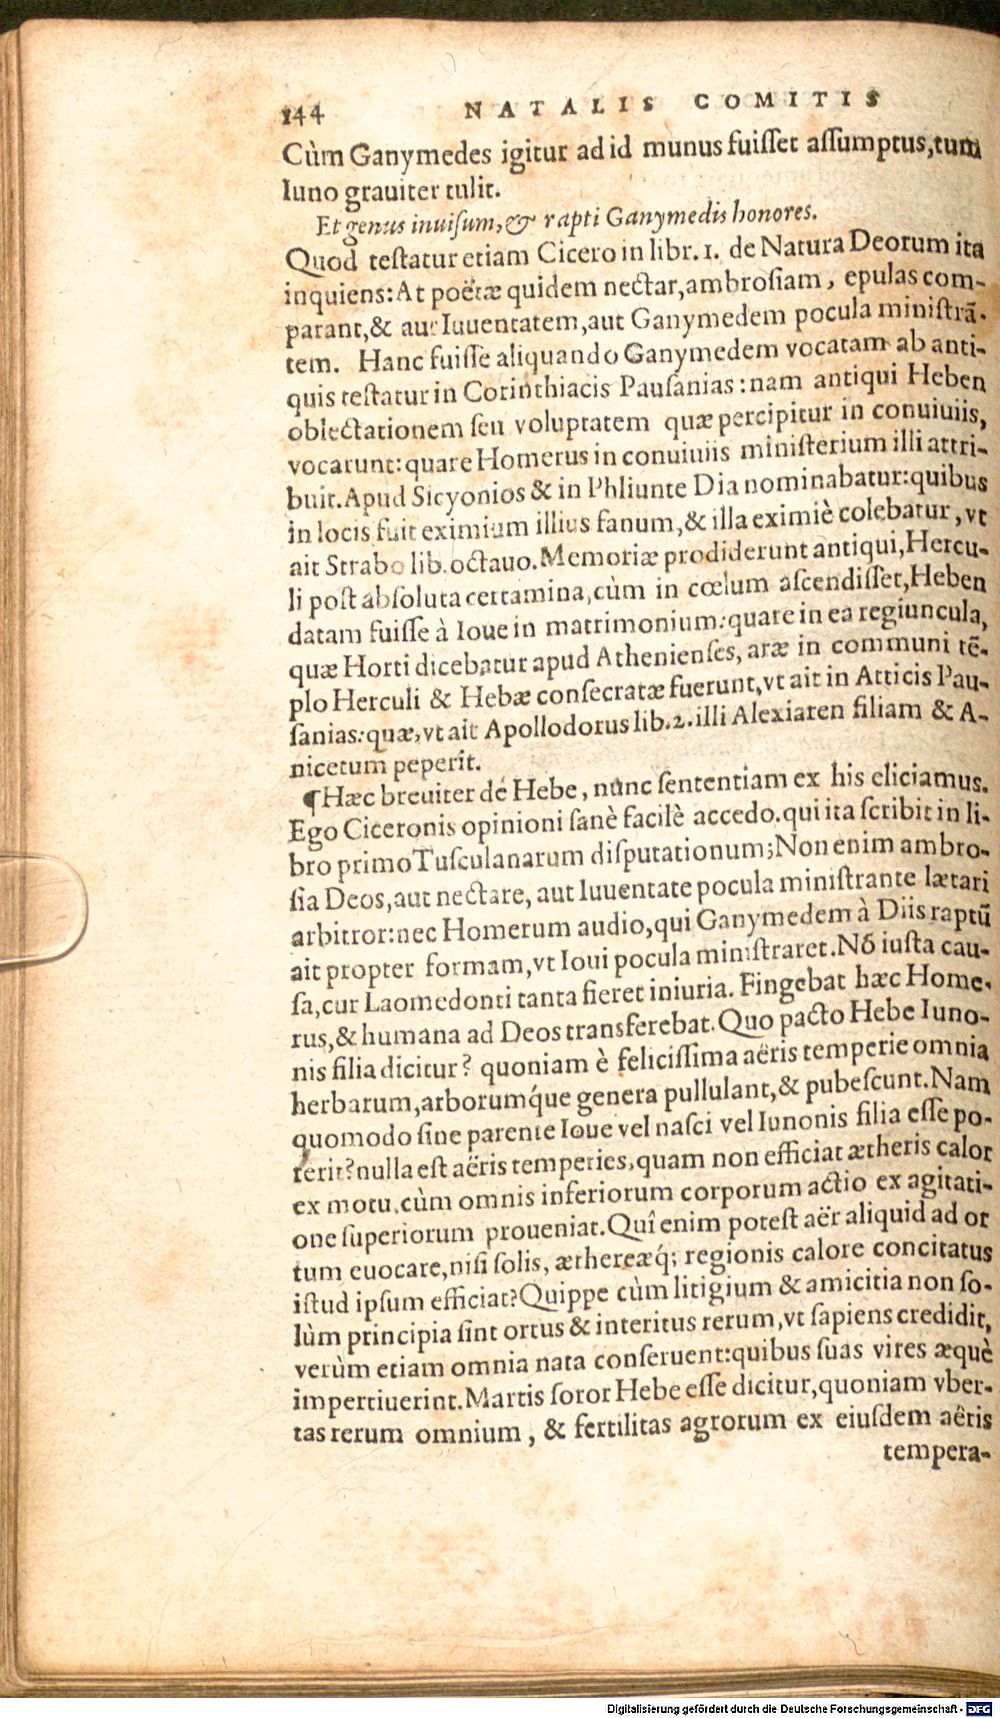 144 NATALIS COMITIS
Cùm Ganymedes igitur ad id munus fuiſſet aſſumptus, tum
Iuno grauiter tulit.
Et genus inuiſum, & rapti Ganymedis honores.
Quod teſtatur etiam Cicero in libr. 1. de Natura Deorum ita
inquiens: At poëtæ quidem nectar, ambroſiam, epulas com-
parant, & aut Iuuentatem, aut Ganymedem pocula miniſtrã-
tem. Hanc fuiſſe aliquando Ganymedem vocatam ab anti-
quis teſtatur in Corinthiacis Pauſanias: nam antiqui Heben
oblectationem ſeu voluptatem quæ percipitur in conuiuiis,
vocarunt: quare Homerus in conuiuiis miniſterium illi attri-
buit. Apud Sicyonios & in Phliunte Dia nominabatur: quibus
in locis fuit eximium illius fanum, & illa eximiè colebatur, vt
ait Strabo lib. octauo. Memoriæ prodiderunt antiqui, Hercu-
li poſt abſoluta certamina, cùm in cœlum aſcendiſſet, Heben
datam fuiſſe à Ioue in matrimonium: quare in ea regiuncula,
quæ Horti dicebatur apud Athenienſes, aræ in communi tē-
plo Herculi & Hebæ conſecratæ fuerunt, vt ait in Atticis Pau-
ſanias: quæ, vt ait Apollodorus lib. 2. illi Alexiaren filiam & A-
nicetum peperit.
¶Hæc breuiter de Hebe, nunc ſententiam ex his eliciamus.
Ego Ciceronis opinioni ſanè facilè accedo. qui ita ſcribit in li-
bro primo Tuſculanarum diſputationum; Non enim ambro-
ſia Deos, aut nectare, aut Iuuentate pocula miniſtrante lætari
arbitror: nec Homerum audio, qui Ganymedem à Diis raptũ
ait propter formam, vt Ioui pocula miniſtraret. Nõ iuſta cau-
ſa, cur Laomedonti tanta fieret iniuria. Fingebat hæc Home-
rus, & humana ad Deos transferebat. Quo pacto Hebe Iuno-
nis filia dicitur? quoniam è feliciſſima aëris temperie omnia
herbarum, arborumq́ue genera pullulant, & pubeſcunt. Nam
quomodo ſine parente Ioue vel naſci vel Iunonis filia eſſe po-
terit? nulla eſt aëris temperies, quam non efficiat ætheris calor
ex motu, cùm omnis inferiorum corporum actio ex agitati-
one ſuperiorum proueniat. Quî enim poteſt aër aliquid ad or
tum euocare, niſi ſolis, æthereæq́; regionis calore concitatus
iſtud ipſum efficiat? Quippe cùm litigium & amicitia non ſo-
lùm principia ſint ortus & interitus rerum, vt ſapiens credidit,
verùm etiam omnia nata conſeruent: quibus ſuas vires æquè
impertiuerint. Martis ſoror Hebe eſſe dicitur, quoniam vber-
tas rerum omnium, & fertilitas agrorum ex eiuſdem aëris
tempera-
Digitalisierung gefördert durch die Deutsche Forschungsgemeinschaft - DFG